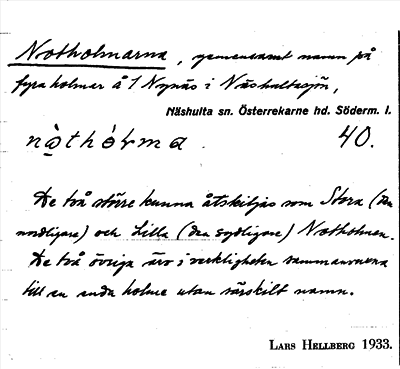 Notholmarna, gemensamt namn på
fyra holmar å 1 Nynäs i Näshultasjön,
Näshulta sn. Österrekarne hd. Söderm. l.
nòthólma. 40.
De två större kunna åtskiljas som Stora (den
nordligare) och Lilla (den sydligare) Notholmen.
De två övriga äro i verkligheten sammanvuxna
till en enda holme utan särskilt namn.
LARS HELLBERG 1933.